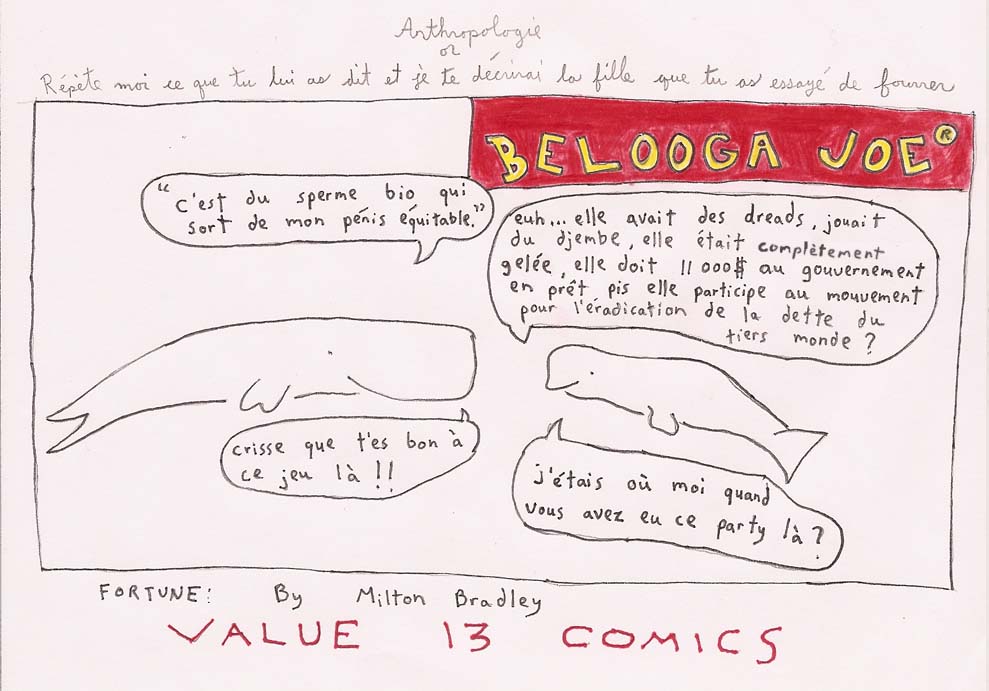 Anthropologie
or
Répète moi ce que tu lui as dit et je te décrirai la fille que tu as essayé de fourrer
BELOOGA JOE®
“c'est du sperme bio qui
sort de mon pénis équitable.”
euh... elle avait des dreads, jouait
du djembe, elle était complètement
gelée, elle doit 11 000$ au gouvernement
en prêt pis elle participe au mouvement
pour l'éradication de la dette du
tiers monde ?
crisse que t'es bon à
ce jeu là !!
j'étais où moi quand
vous avez eu ce party là ?
FORTUNE: By Milton Bradley
VALUE 13 COMICS